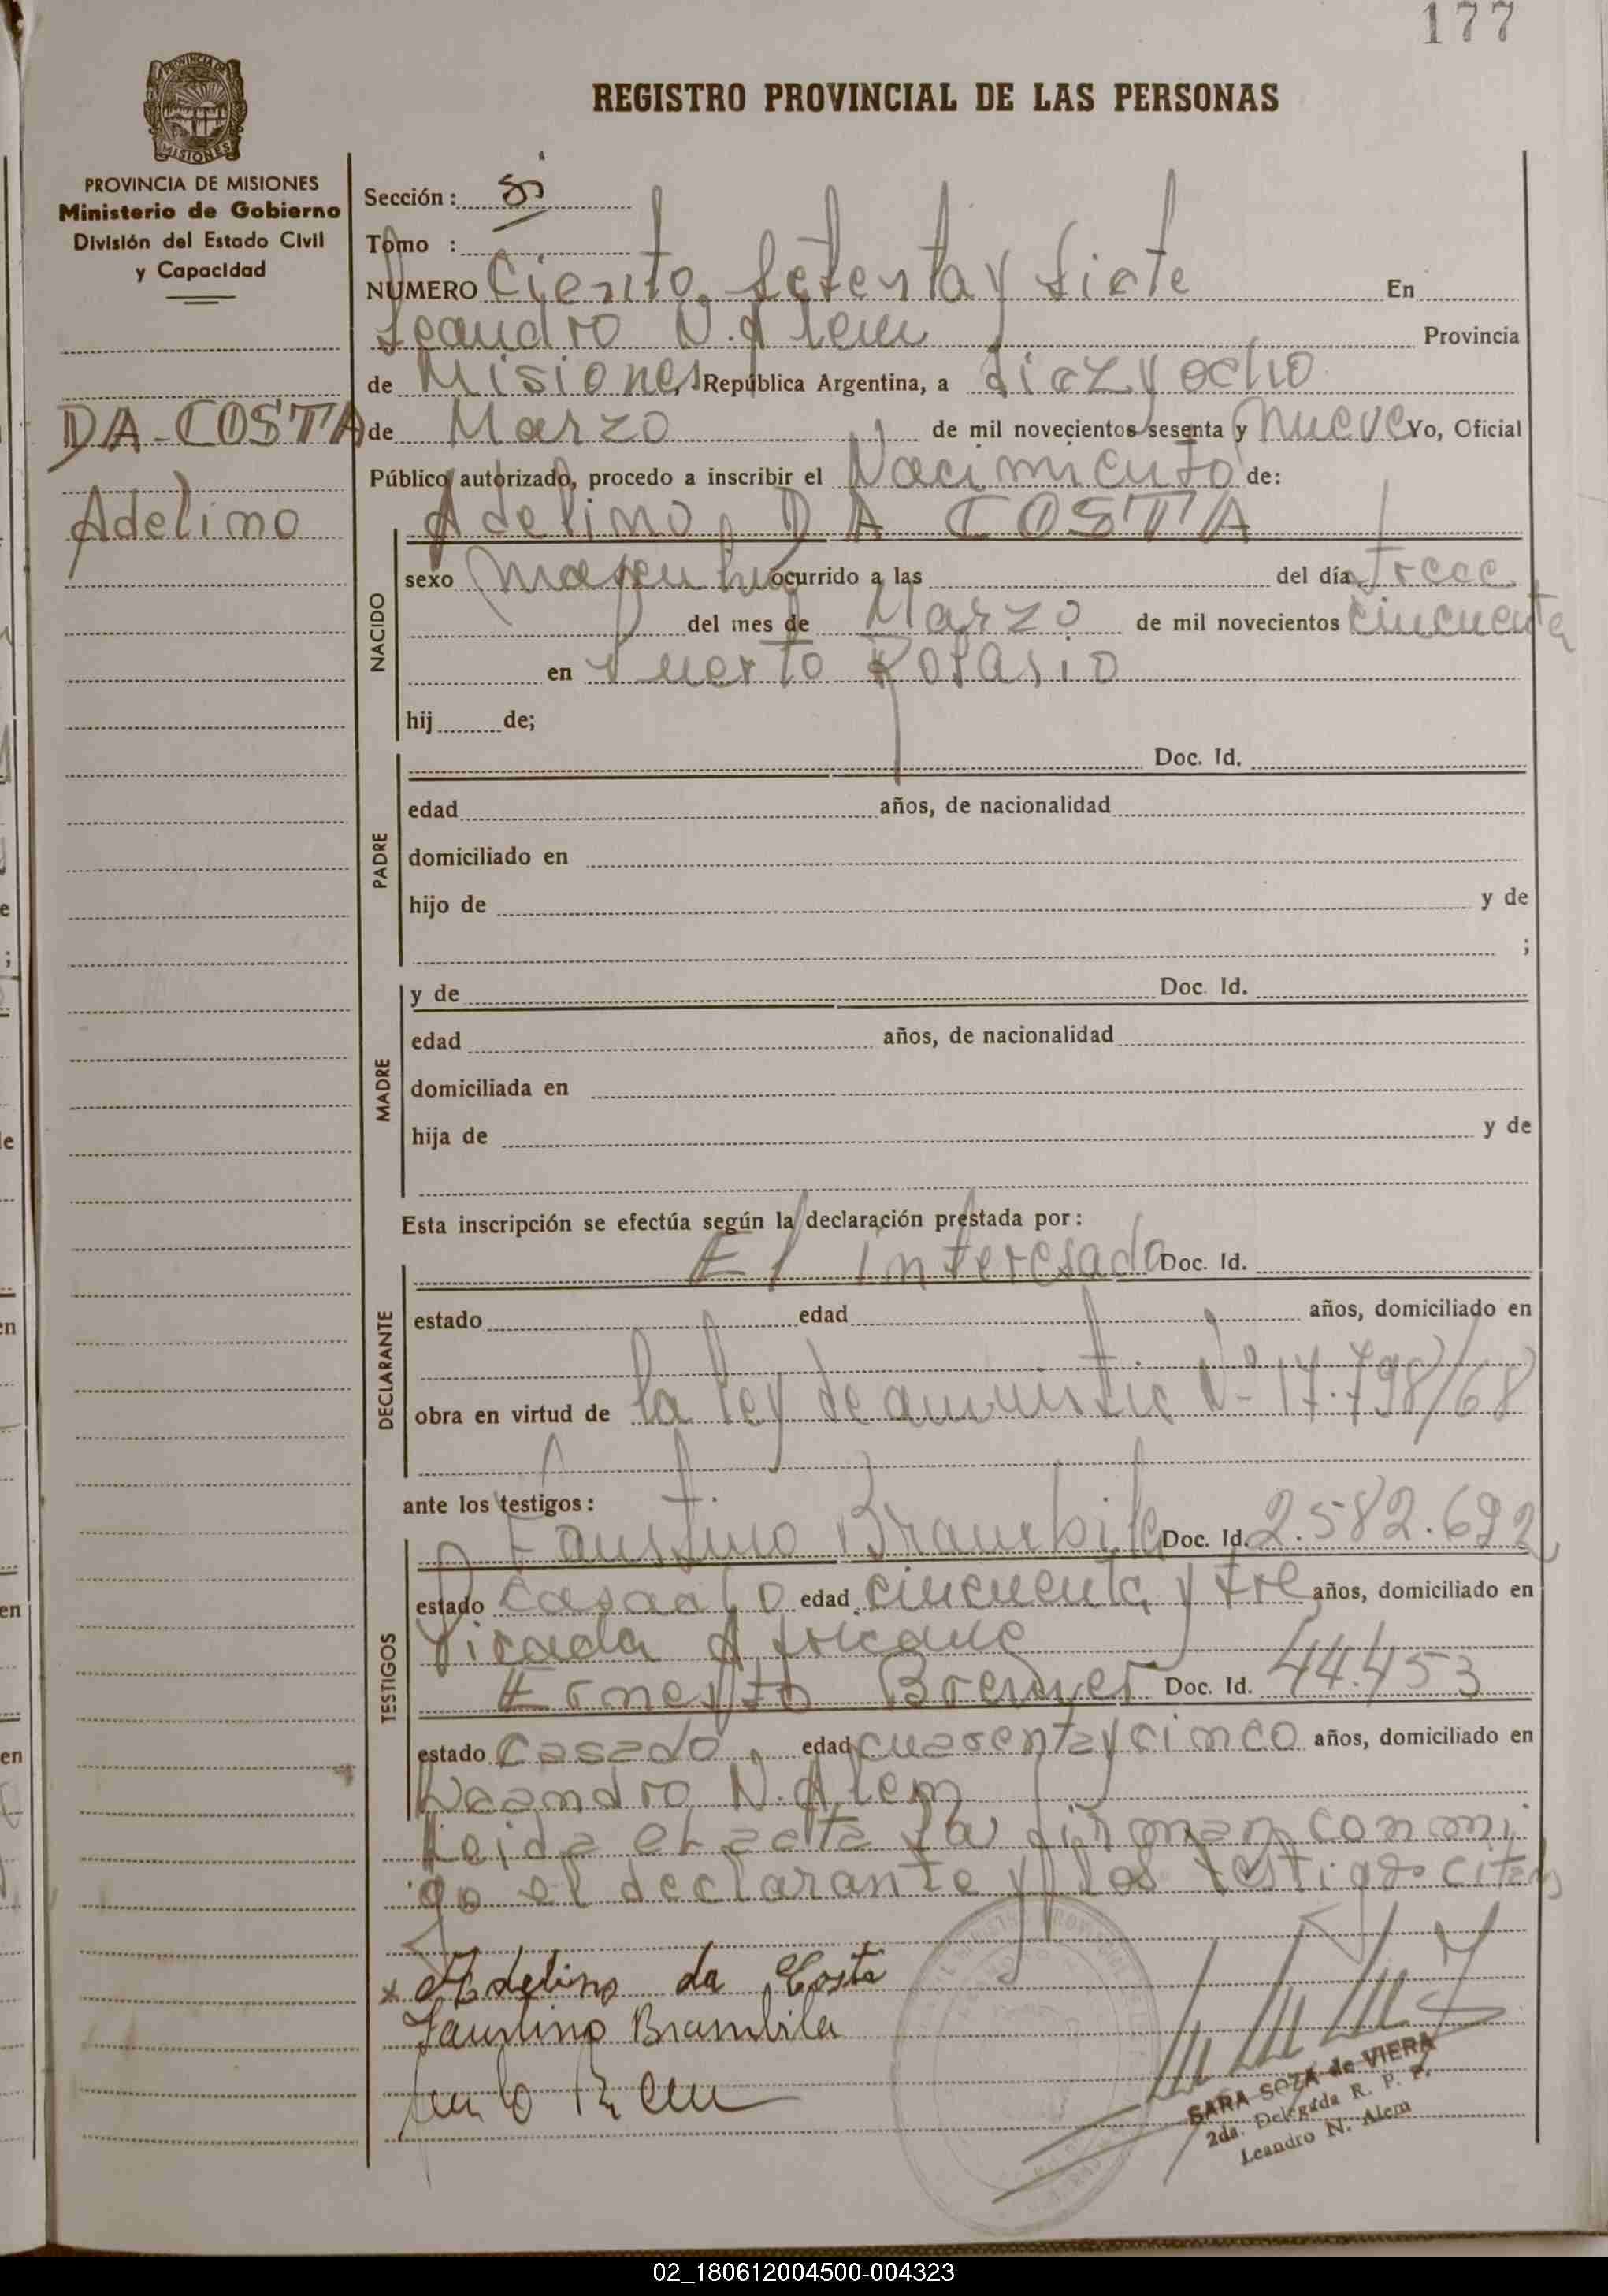 177
REGISTRO PROVINCIAL DE LAS PERSONAS
PROVINCIA DE MISIONES
MISIONES
PROVINCIA DE MISIONES
Ministerio de Gobierno
División del Estado Civil
y Capacidad
DA-COSTA
Adelino
Sección:
Tomo :
NUMERO Ciento Setenta y Siete En
Leandro N. Alem Provincia
de Misiones, República Argentina, a diez y ocho
de Marzo de mil novecientos sesenta y nueve Yo, Oficial
Público autorizado, procedo a inscribir el Nacimiento de:
Adelino DA COSTA
NACIDO
sexo ocurrido a las del día trece
del mes de Marzo de mil novecientos cincuenta
en Puerto Rosario
hij de;
PADRE
Doc. Id.
edad años, de nacionalidad
domiciliado en
hijo de y de
;
MADRE
y de Doc. Id.
edad años, de nacionalidad
domiciliada en
hija de y de
Esta inscripción se efectúa según la declaración prestada por:
DECLARANTE
El interesado Doc. Id.
estado edad años, domiciliado en
obra en virtud de la ley de Nº 17.798/68
ante los testigos:
TESTIGOS
Faustino Brambila Doc. Id. 2.582.692
estado casado edad cincuenta y tre años, domiciliado en
Picada Africano
Ernesto Doc. Id. 44.453
estado casado edad cuarenta y cinco años, domiciliado en
Leandro N. Alem
Leida el acta la firman conmi
go el declarante y los testigo citas
x Adelino da Costa
Faustino Brambila
SARA SOZA de VIERA
2da. Delegada R. P. P.
Leandro N. Alem
02_180612004500-004323